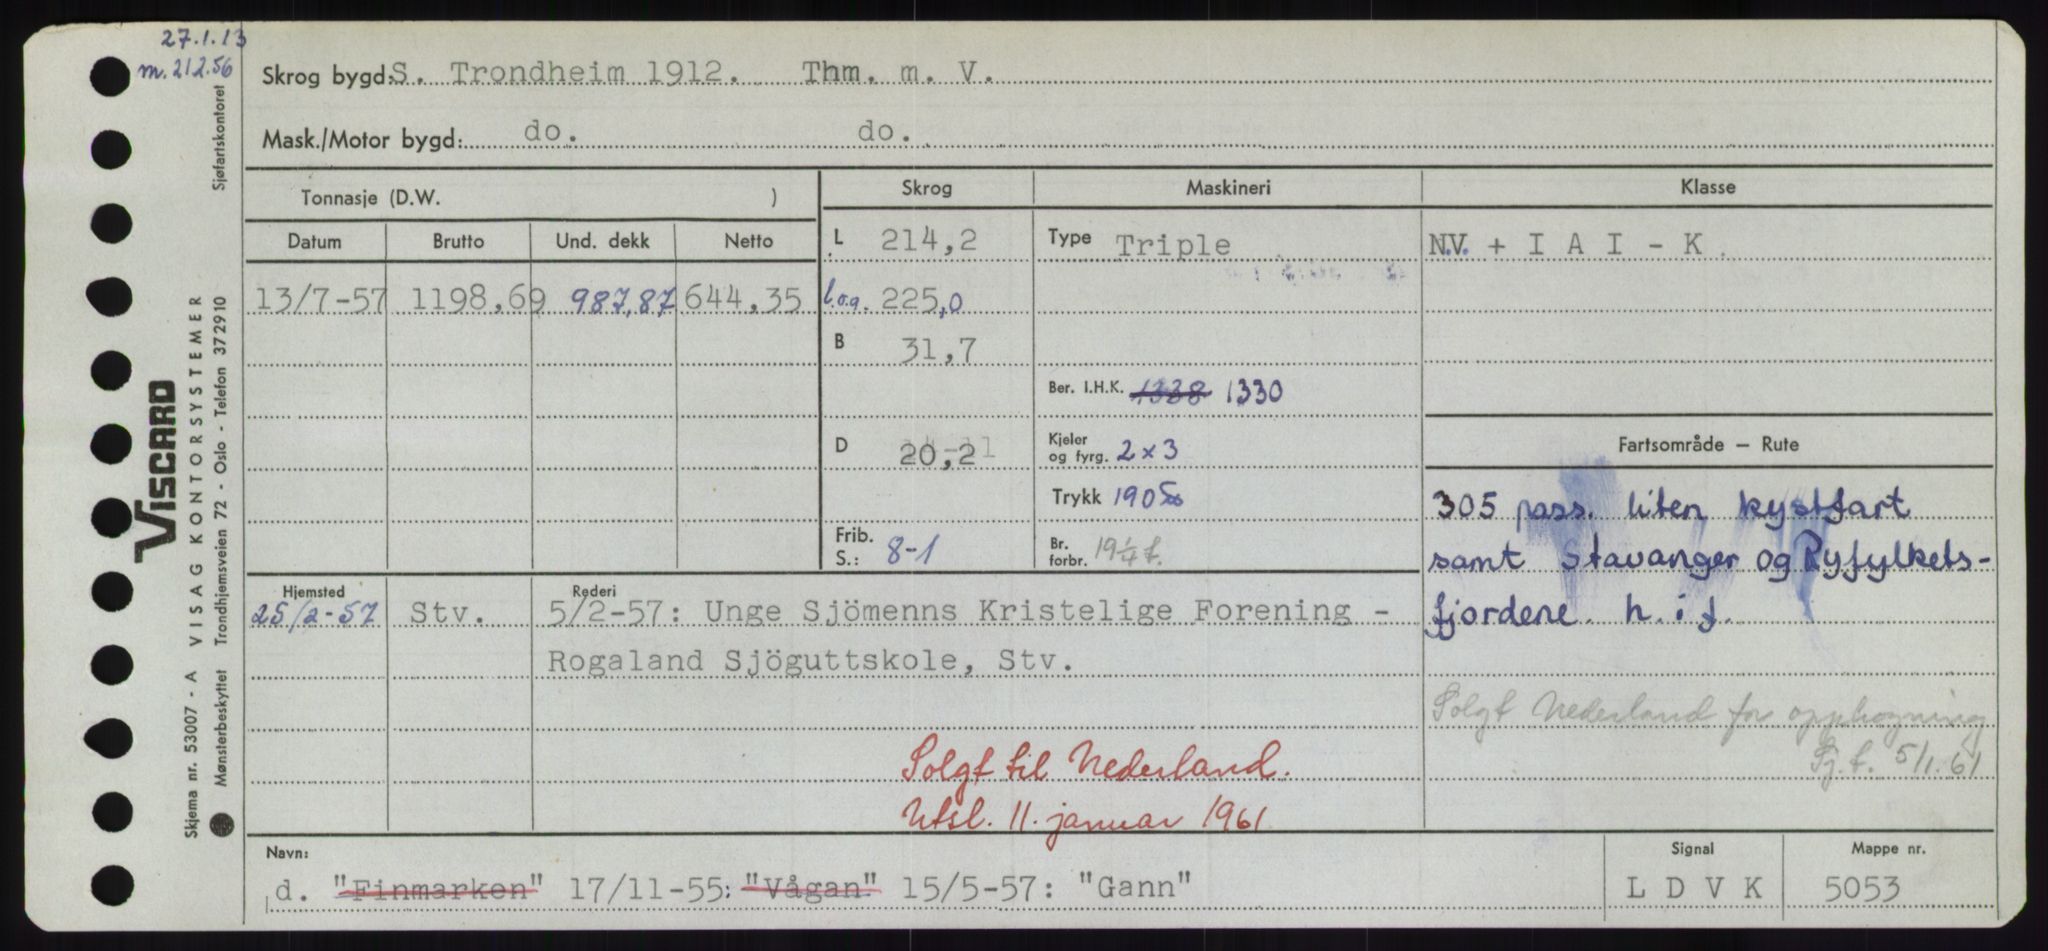 27.1.13
m. 212.56
Skrog bygd: S. Trondheim 1912. Thm. m. V.
Mask./Motor bygd: do. do.
Tonnasje (D.W. )
Skrog
Maskineri
Klasse
Datum Brutto Und. dekk Netto
13/7-57 1198,69 987,87 644,35
L 214,2
l.o.a. 225,0
B 31,7
D 20,2
Frib. S.: 8-1
Type Triple
Ber. I.H.K. 1338 1330
Kjeler og fyrg. 2 x 3
Trykk 190
Br. forbr. 19 1/4 t.
N.V. + I A I - K.
Fartsområde — Rute
305 pass. liten kystfart
samt Stavanger og Ryfylkets-
fjordene h.i.f.
Solgt Nederland for opphogning
Sj.t. 5/1.61
Hjemsted
Rederi
25/2-57 Stv. 5/2-57: Unge Sjömenns Kristelige Forening -
Rogaland Sjöguttskole, Stv.
Solgt til Nederland.
Utsl. 11. januar 1961
Navn:
d. "Finmarken" 17/11-55: "Vågan" 15/5-57: "Gann"
Signal
L D V K
Mappe nr.
5053
Sjøfartskontoret
VISCARD
Skjema nr. 53007 - A VISAG KONTORSYSTEMER
Mønsterbeskyttet Trondhjemsveien 72 - Oslo - Telefon 372910